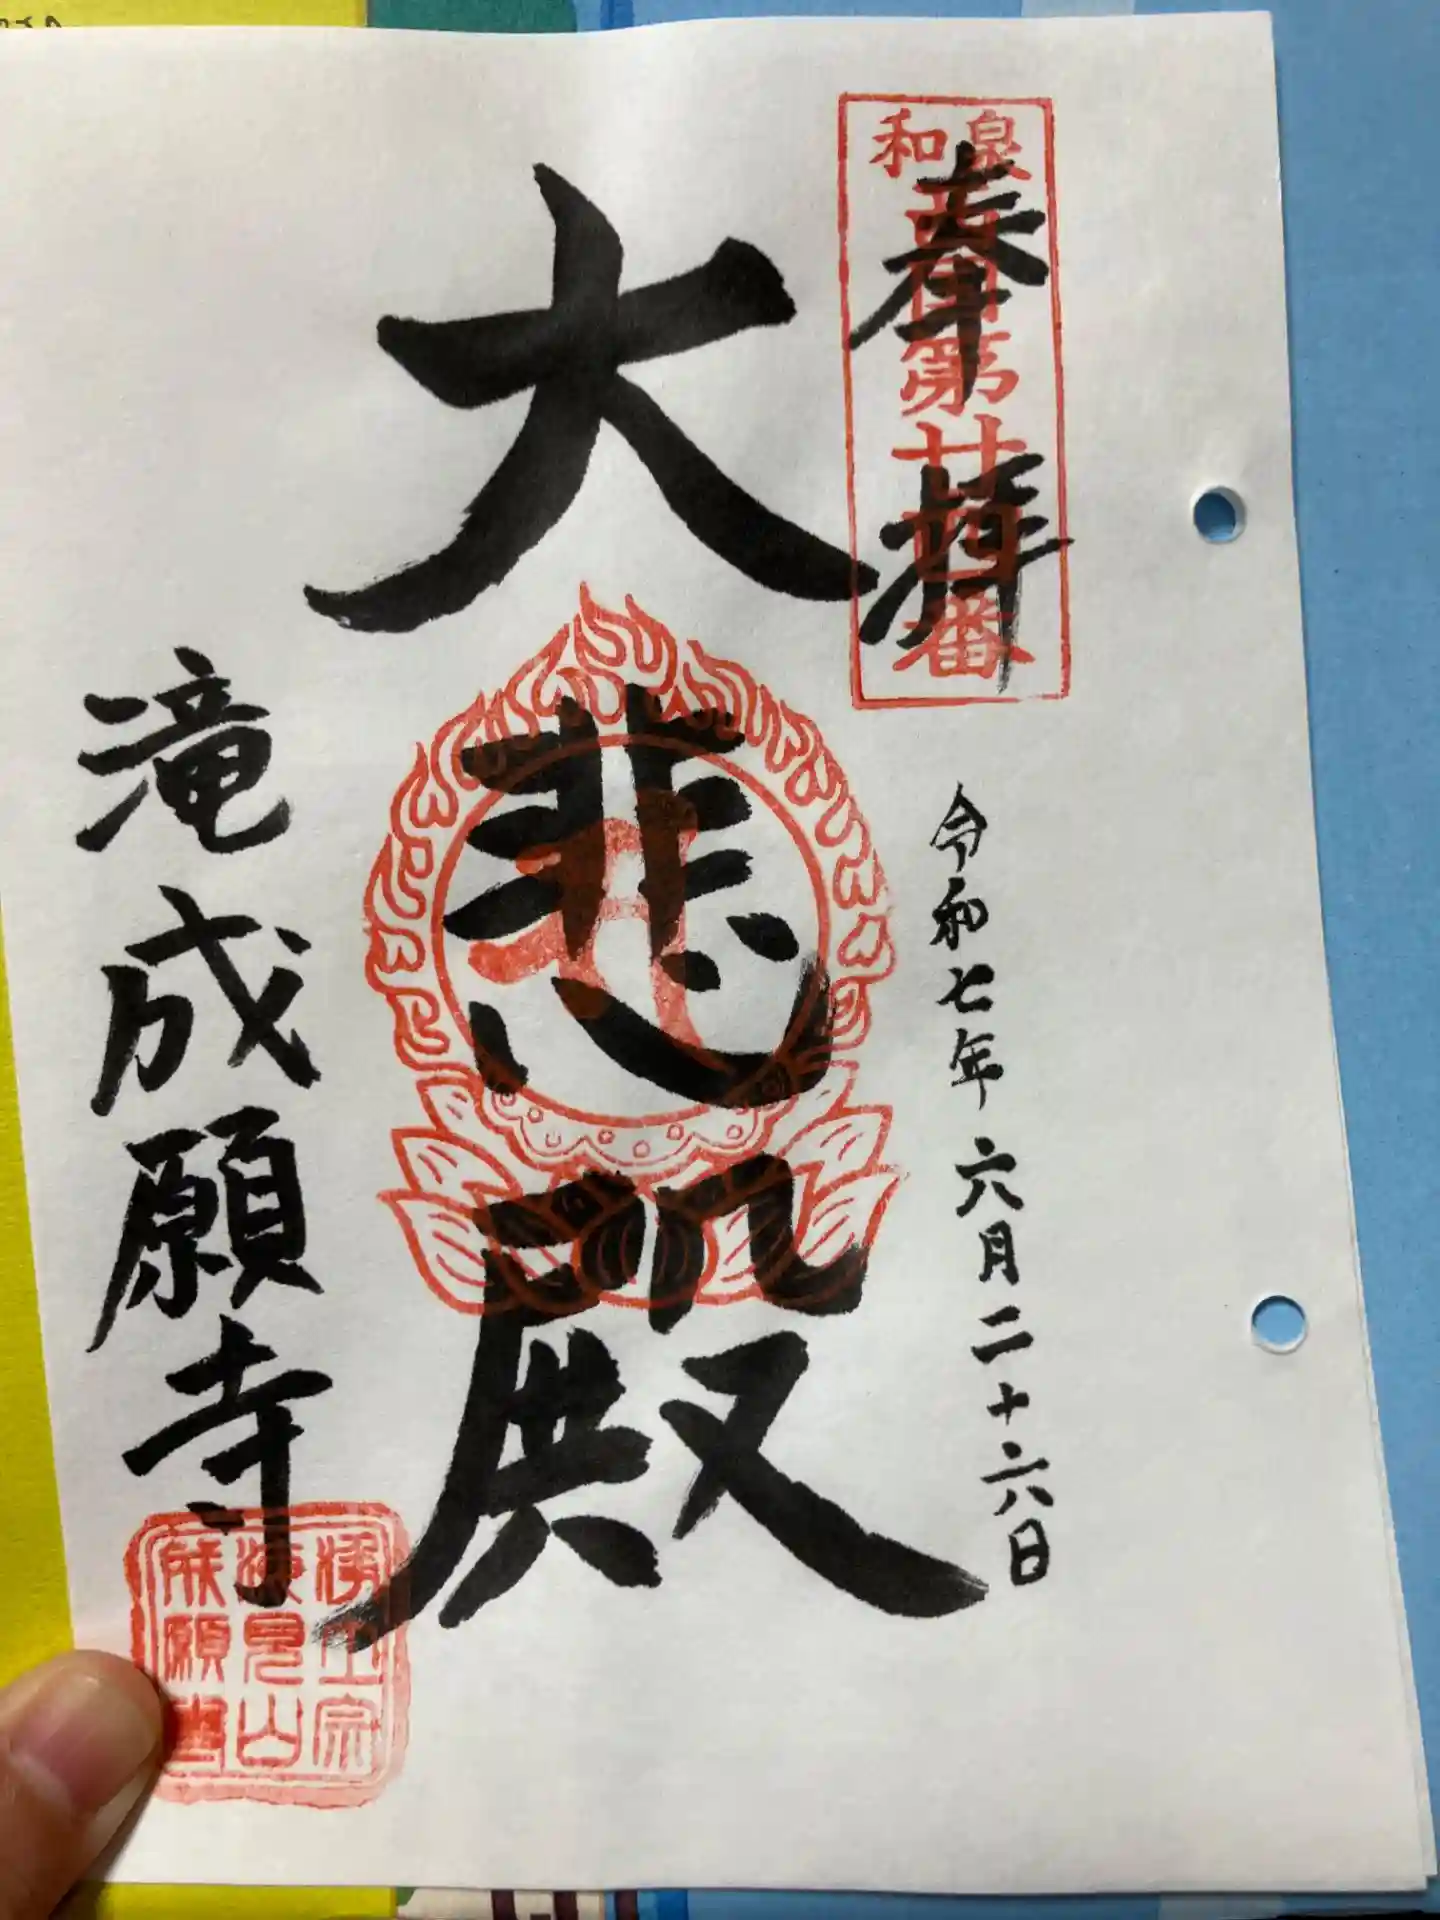 奉拝
和泉
西国第廿四番
令和七年六月二十六日
大悲殿
滝成願寺
浄土宗
海見山
成願寺